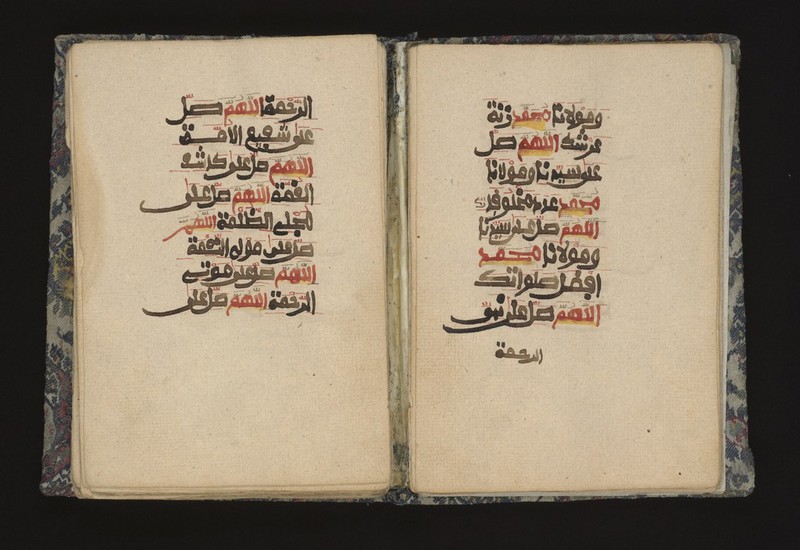 ومولانا محمد زنة
عرشك اللهم صل
على سيدنا ومولانا
محمد عدد مخلوقاتك
اللهم صل على سيدنا
ومولانا محمد
افضل صلواتك
اللهم صل على نبي
الرحمة
الرحمة اللهم صل
على شفيع الامة
اللهم صل على كاشف
الغمة اللهم صل على
مجلى الظلمة اللهم
صل على مولى النعمة
اللهم صل على موتي
الرحمة اللهم صل على